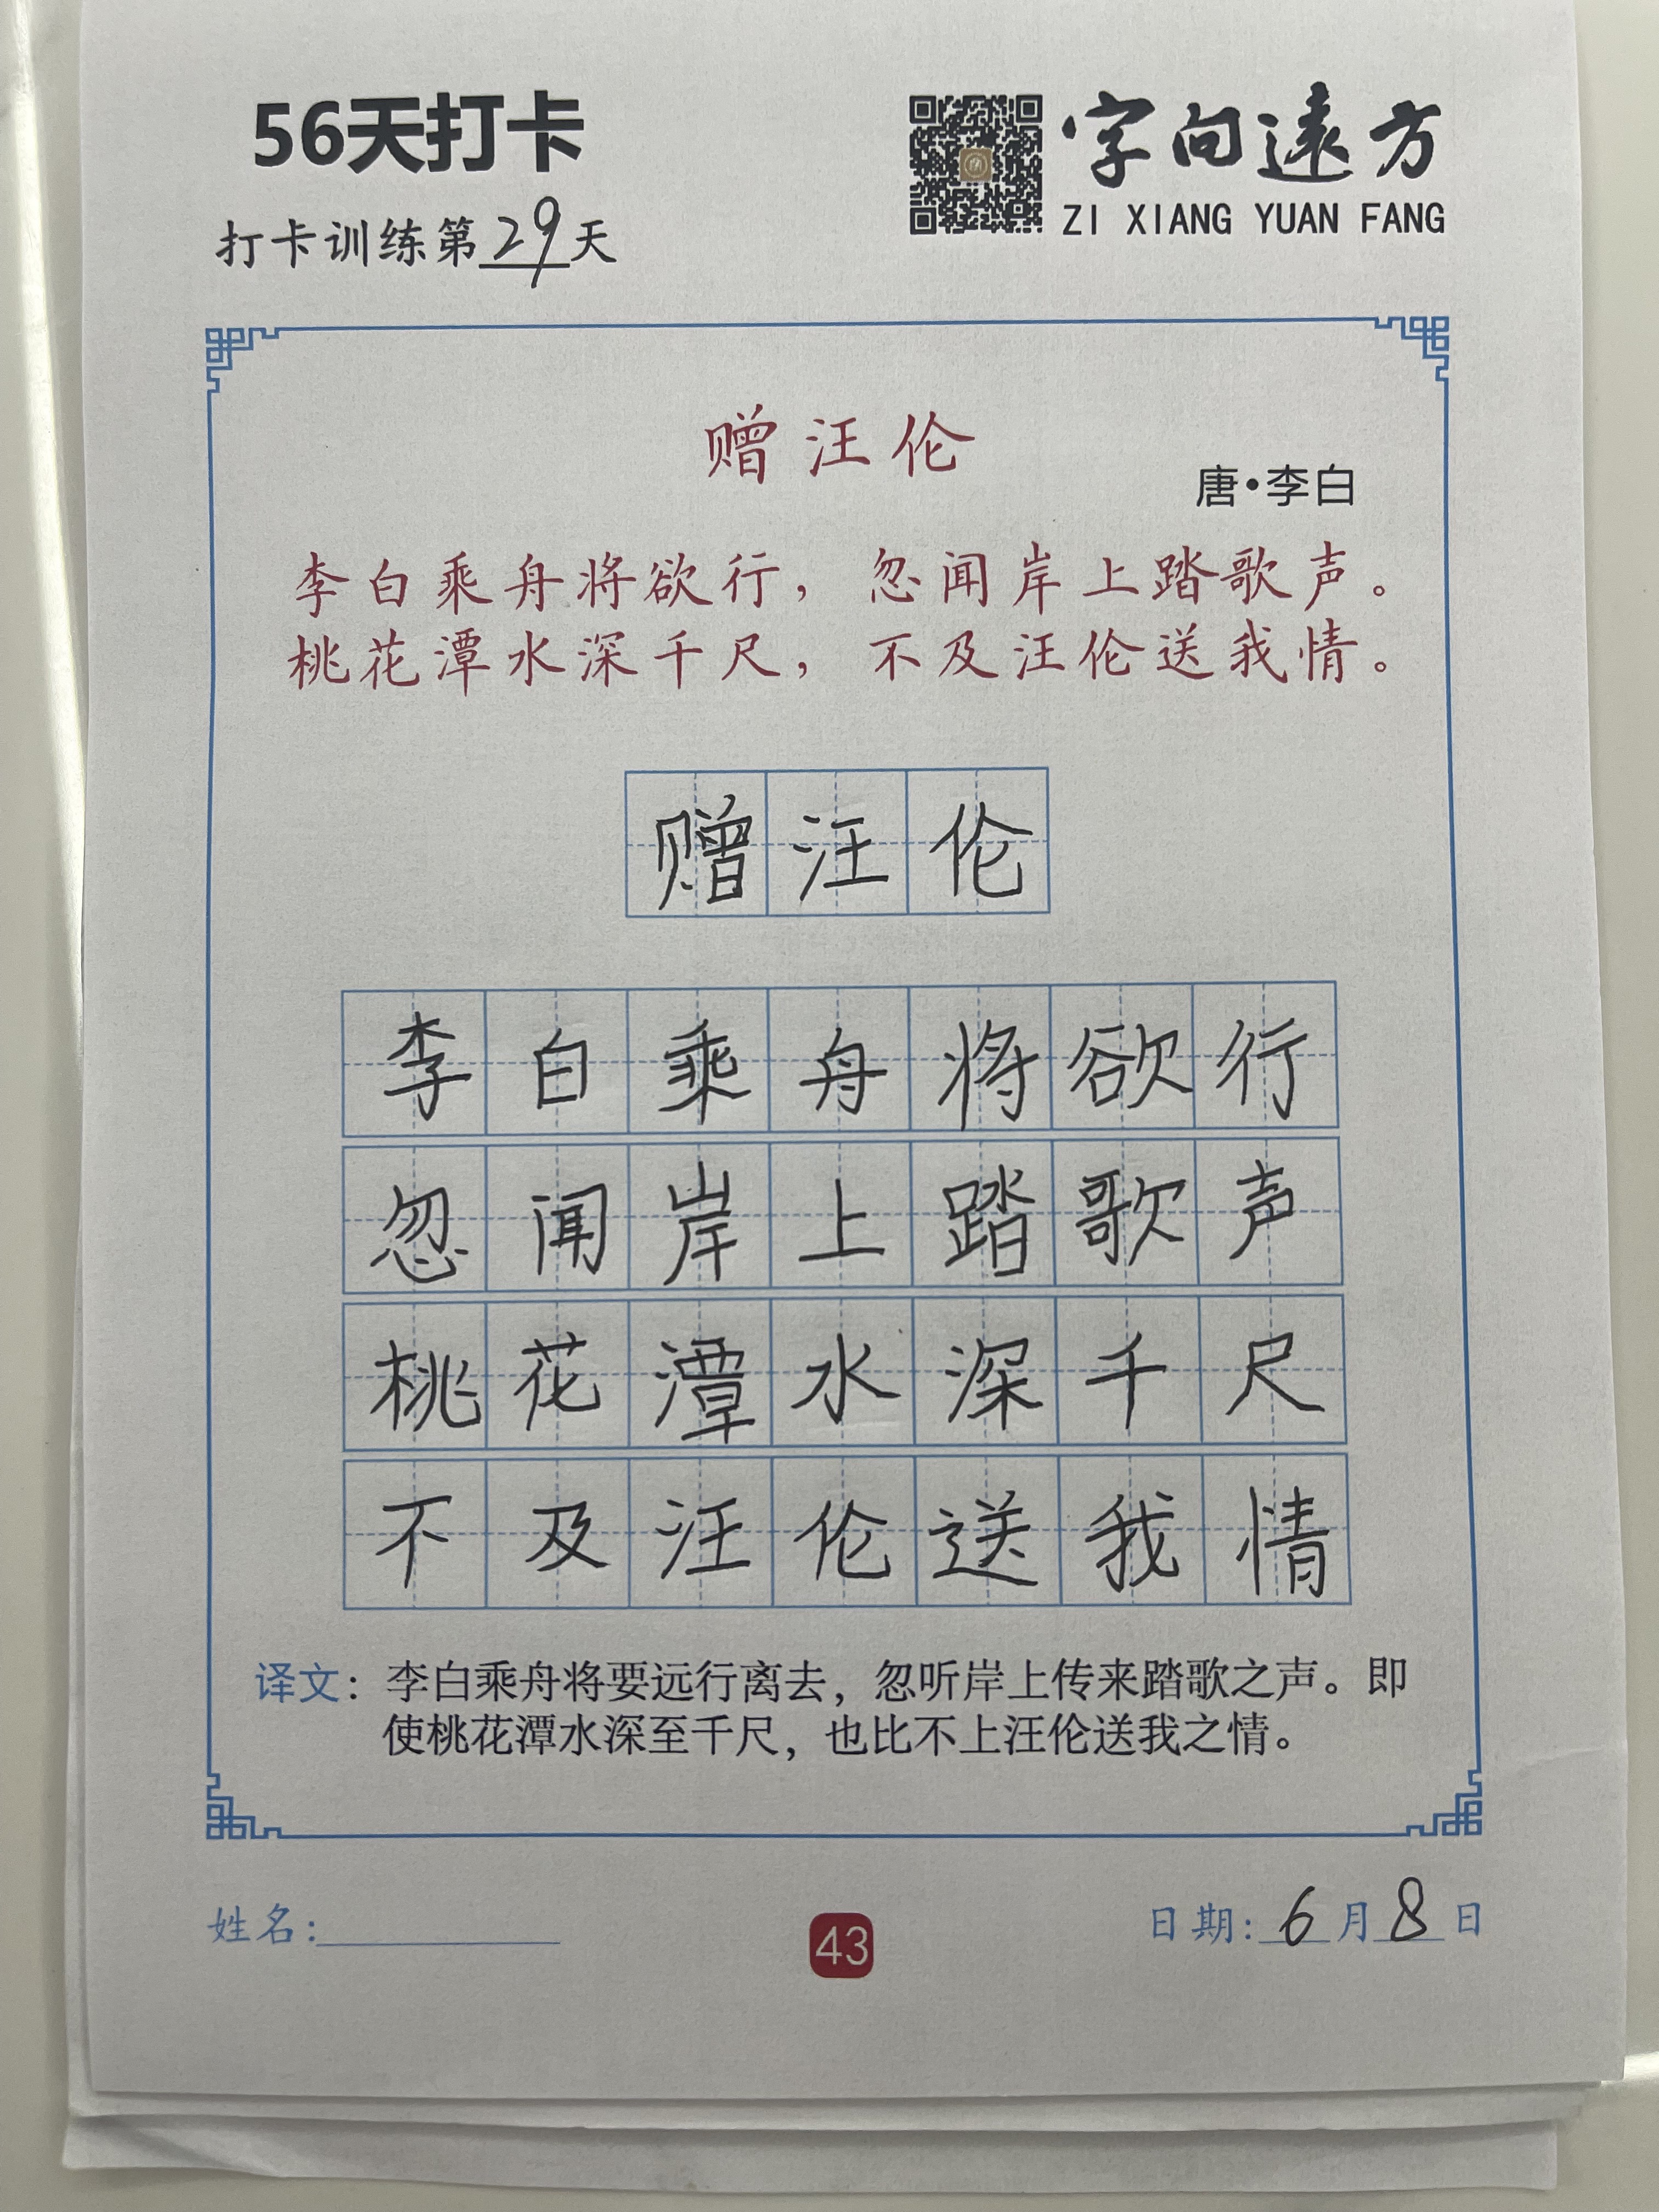 56天打卡
字向遠方
ZI XIANG YUAN FANG
打卡训练第29天
赠汪伦
唐·李白
李白乘舟将欲行，忽闻岸上踏歌声。
桃花潭水深千尺，不及汪伦送我情。
赠汪伦
李白乘舟将欲行
忽闻岸上踏歌声
桃花潭水深千尺
不及汪伦送我情
译文：李白乘舟将要远行离去，忽听岸上传来踏歌之声。即
使桃花潭水深至千尺，也比不上汪伦送我之情。
姓名：
43
日期：6月8日